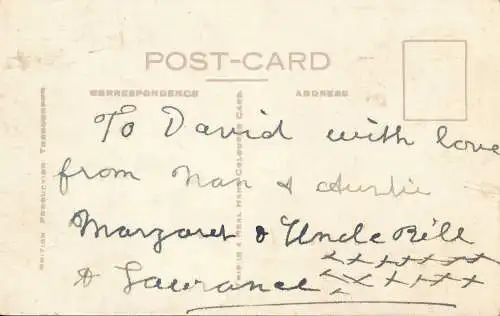 POST-CARD
CORRESPONDENCE
ADDRESS
BRITISH PRODUCTION THROUGHOUT
THIS IS A REAL HAND COLOURED CARD
To David with love
from Nan & Auntie
Margaret & Uncle Bill
& Laurance x x x x x x x
x x x x x x